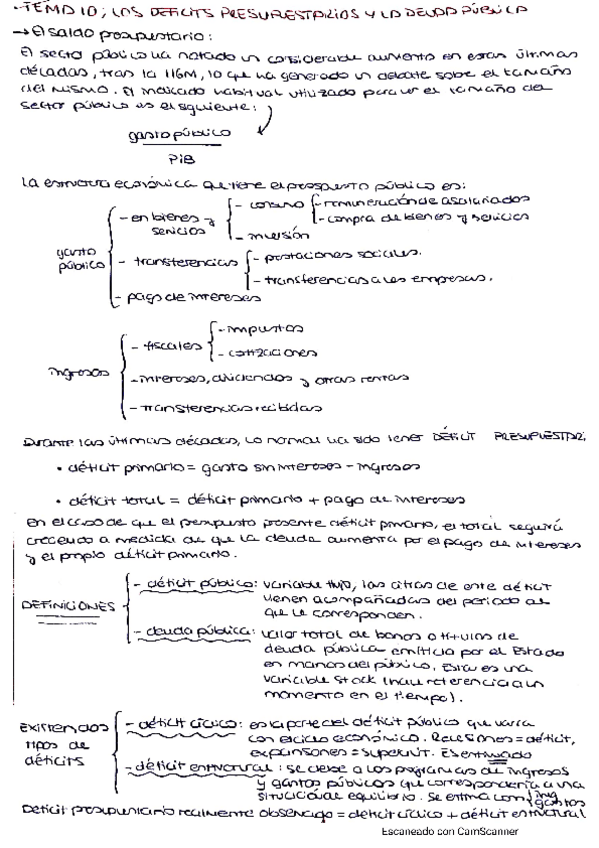 - TEMA 10; LOS DÉFICITS PRESUPUESTARIOS Y LA DEUDA PÚBLICA
→ El saldo presupuestario:
El sector público ha notado un considerable aumento en estas últimas
décadas, tras la IIGM, lo que ha generado un debate sobre el tamaño
del mismo. El indicador habitual utilizado para ver el tamaño del
sector público es el siguiente:
gasto público
PIB
La estructura económica que tiene el presupuesto público es:
gasto público
- en bienes y servicios
- consumo
- remuneración de asalariados
- compra de bienes y servicios
- inversión
- transferencias
- prestaciones sociales.
- transferencias a las empresas.
- pago de intereses
ingresos
- fiscales
- impuestos
- cotizaciones
- intereses, dividendos y otras rentas
- transferencias recibidas
Durante las últimas décadas, lo normal ha sido tener DÉFICIT PRESUPUESTARI
• déficit primario = gasto sin intereses - ingresos
• déficit total = déficit primario + pago de intereses
En el caso de que el presupuesto presente déficit primario, el total seguirá
creciendo a medida de que la deuda aumenta por el pago de intereses
y el propio déficit primario.
DEFINICIONES
- déficit público: variable flujo, las cifras de este déficit
vienen acompañadas del periodo al
que le corresponden.
- deuda pública: valor total de bonos o títulos de
deuda pública emitida por el Estado
en manos del público. Esta es una
variable stock (hace referencia a un
momento en el tiempo).
EXISTEN DOS
TIPOS DE
DÉFICITS
- déficit cíclico: es la parte del déficit público que varía
con el ciclo económico. Recesiones = déficit,
expansiones = superávit. Es estimado
- déficit estructural: se debe a los programas de ingresos
y gastos públicos que correspondería a una
situación de equilibrio. Se estima con ing
gastos
Déficit presupuestario realmente observado = déficit cíclico + déficit estructural
Escaneado con CamScanner